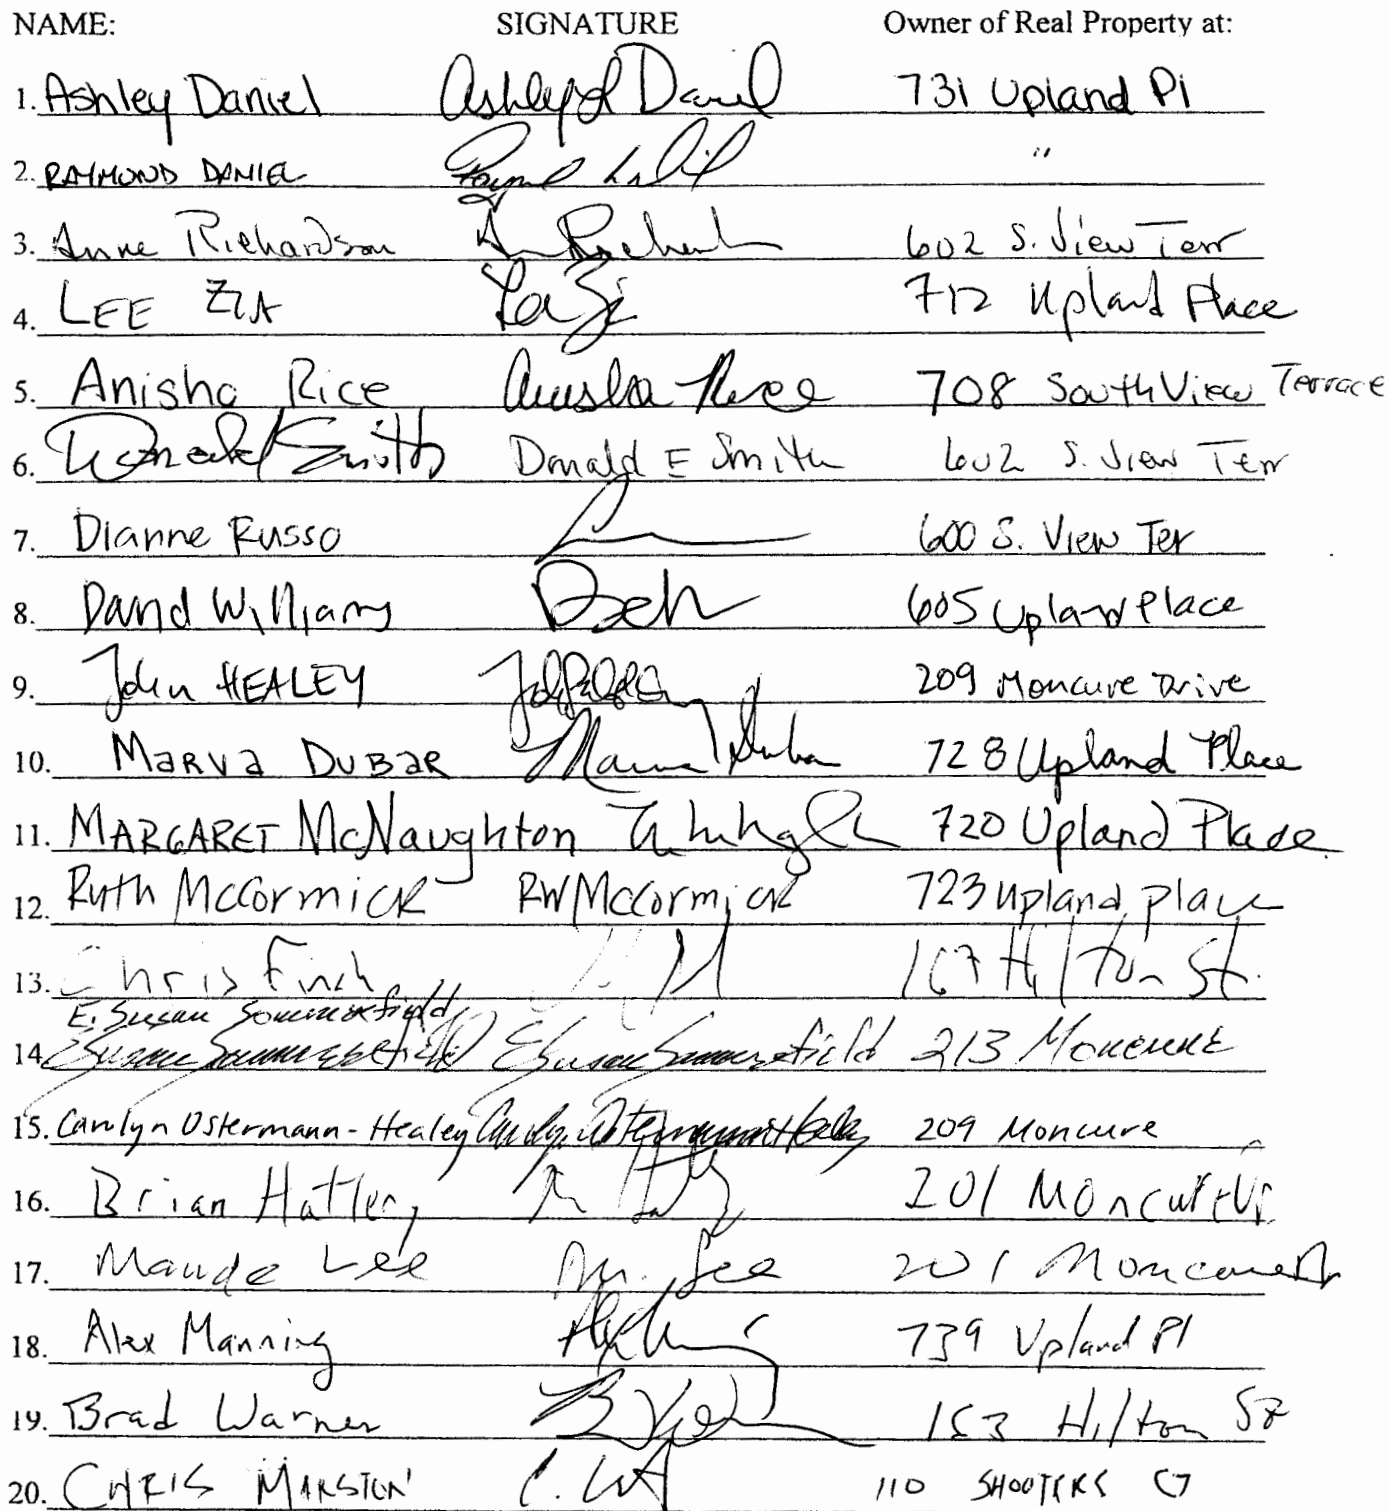 NAME: SIGNATURE Owner of Real Property at:
1. Ashley Daniel Ashley Daniel 731 Upland Pl
2. RAYMOND DANIEL "
3. Anne Richardson 602 S. View Terr
4. LEE ZIA 712 Upland Place
5. Anisha Rice Anisha Rice 708 South View Terrace
6. Donald Smith Donald E Smith 602 S. View Terr
7. Dianne Russo 600 S. View Ter
8. David Williams 605 Upland Place
9. John HEALEY 209 Moncure Drive
10. Marva Dubar Marva Dubar 728 Upland Place
11. MARGARET McNaughton 720 Upland Place
12. Ruth McCormick RW McCormick 723 upland place
13. Chris Finch 167 Hilton St.
E. Susan Sommerfield
14. E Susan Sommerfield 213 Moncure
15. Carolyn Ostermann-Healey 209 Moncure
16. Brian Hattery 201 Moncure
17. Maude Lee M. Lee 201 Moncure Dr
18. Alex Manning 739 Upland Pl
19. Brad Warner 153 Hilton St
20. CHRIS MARSTON 110 SHOOTERS CT